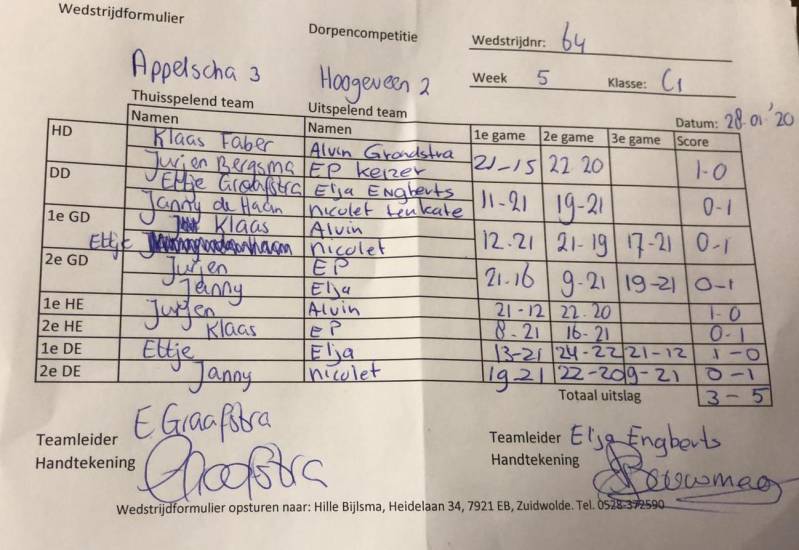 Wedstrijdformulier
Dorpencompetitie
Wedstrijdnr: 64
Appelscha 3 Hoogeveen 2
Week 5 Klasse: C1
Thuisspelend team Uitspelend team Datum: 28.01.'20
Namen Namen 1e game 2e game 3e game Score
HD Klaas Faber Alvin Grondstra 21-15 22 20 1-0
Jurjen Bergsma EP Keizer
DD Ettje Graafstra Elja Engberts 11-21 19-21 0-1
Janny de Haan Nicolet ten Kate
1e GD Klaas Alvin 12.21 21-19 17-21 0-1
Ettje Nicolet
2e GD Jurjen EP 21.16 9-21 19-21 0-1
Janny Elja
1e HE Jurjen Alvin 21-12 22.20 1-0
2e HE Klaas EP 8-21 16-21 0-1
1e DE Ettje Elja 13-21 24-22 21-12 1-0
2e DE Janny Nicolet 19-21 22-20 9-21 0-1
Totaal uitslag 3-5
Teamleider E Graafstra Teamleider Elja Engberts
Handtekening Graafstra Handtekening
Wedstrijdformulier opsturen naar: Hille Bijlsma, Heidelaan 34, 7921 EB, Zuidwolde. Tel. 0528-372590